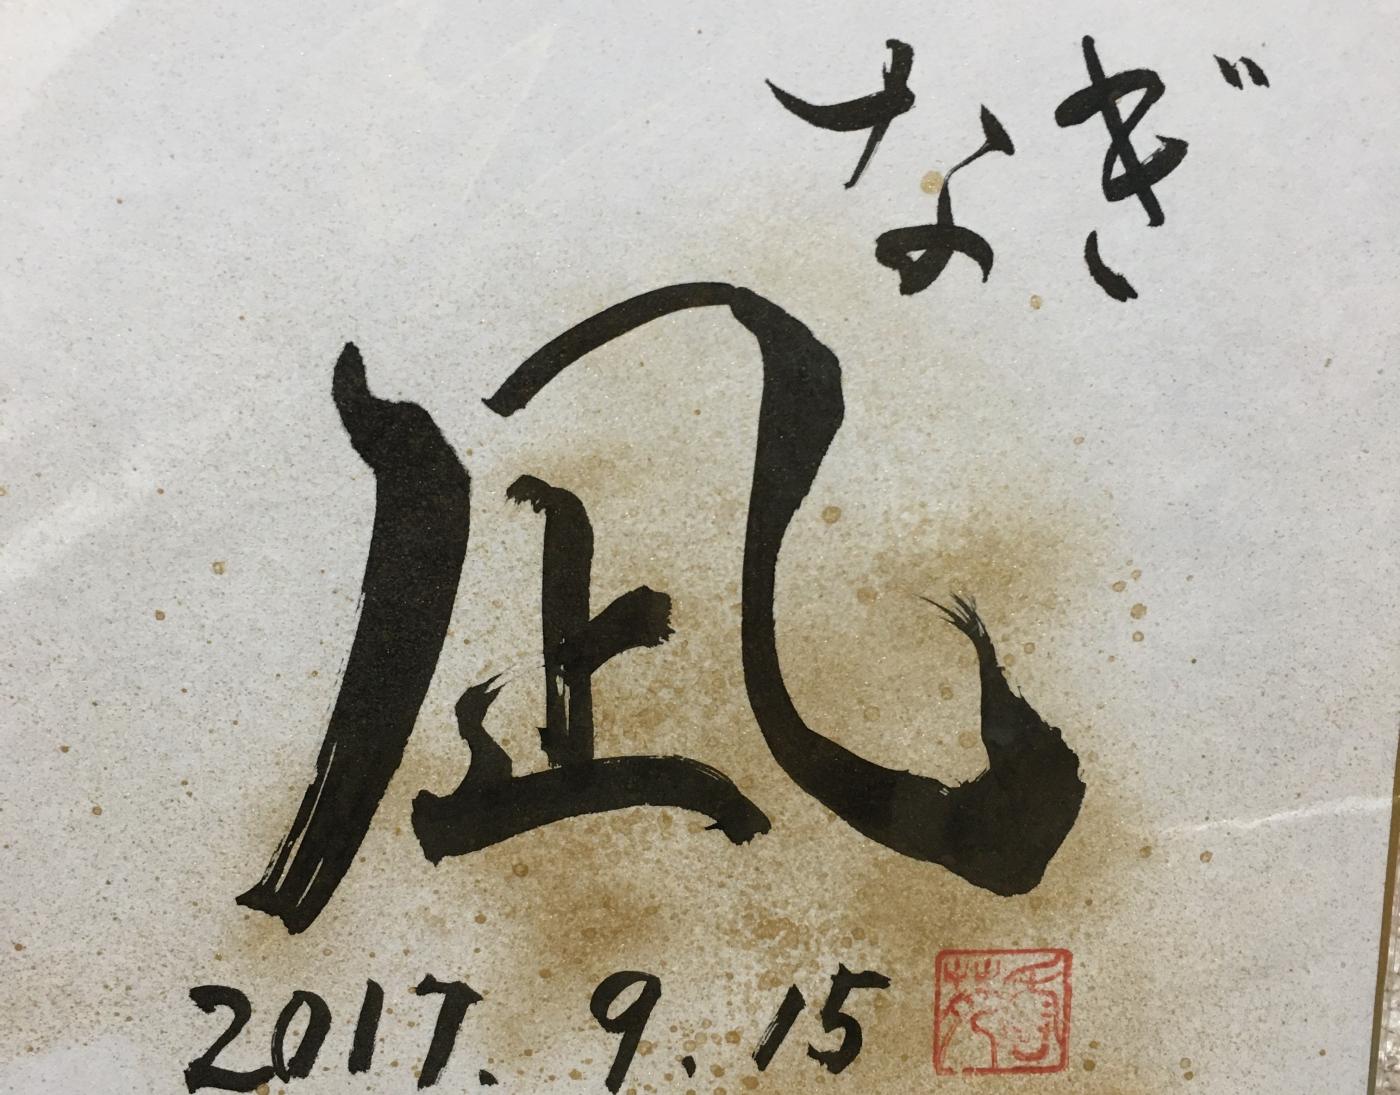 なぎ
凪
2017. 9. 15